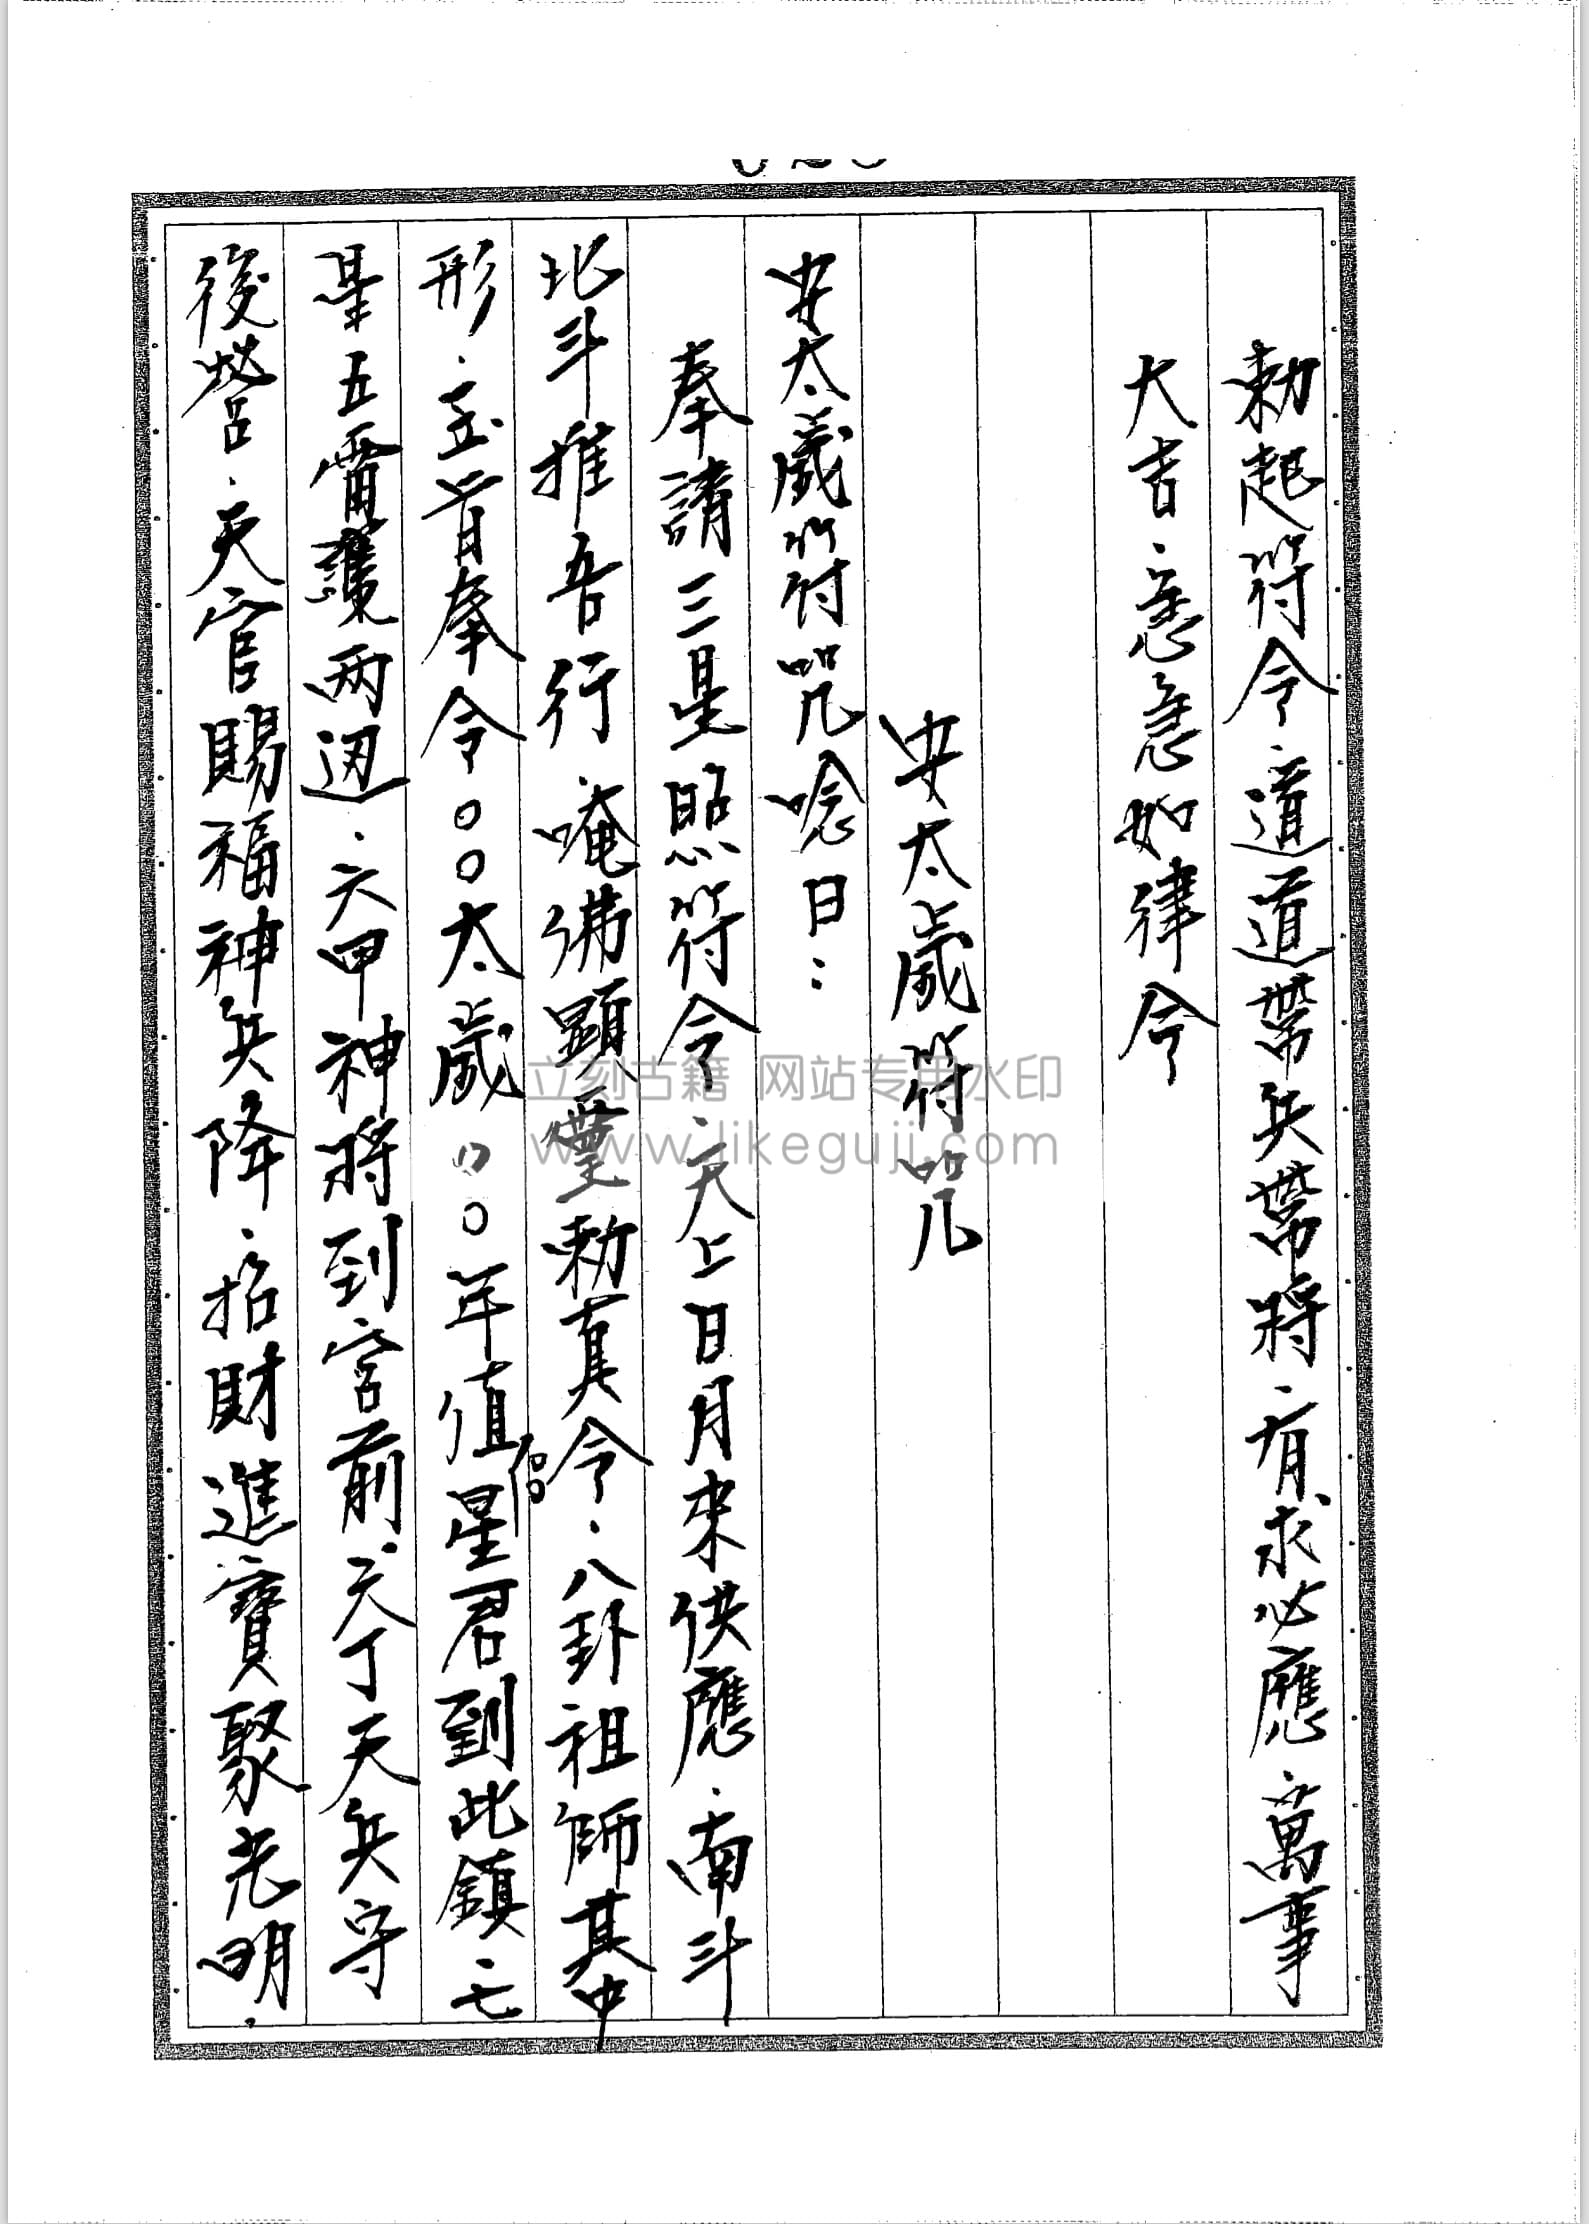 勅起符令．道道帶兵帶將．有求必應．萬事
大吉．急急如律令
安太歲符咒
安太歲符咒唸曰：
奉請三星照符令．天上日月来供應．南斗
北斗推吾行．唵佛顯靈勅真令．八卦祖師其中
形．玉旨奉令〇〇太歲〇〇年值星君到此鎮．七
星五雷護两边．六甲神将到宮前．天丁天兵守
後營．天官賜福神兵降．招財進寶聚光明．
立刻古籍 网站专用水印
www.likeguji.com